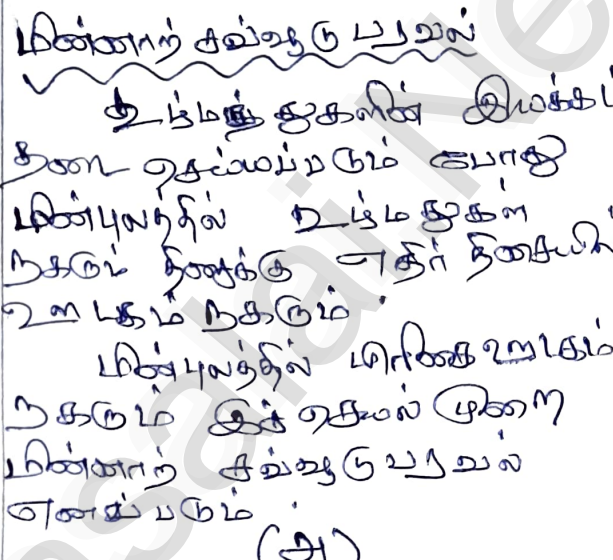 மின்னாற் சவ்வூடு பரவல்
கூழ்மத் துகளின் இயக்கம்
தடை செய்யப்படும் போது
மின்புலத்தில் கூழ்ம துகள்
நகரும் திசைக்கு எதிர் திசையில்
ஊடகம் நகரும்.
மின்புலத்தில் பிரிகை ஊடகம்
நகரும் இச் செயல் முறை
மின்னாற் சவ்வூடு பரவல்
எனப் படும்.
(அ)